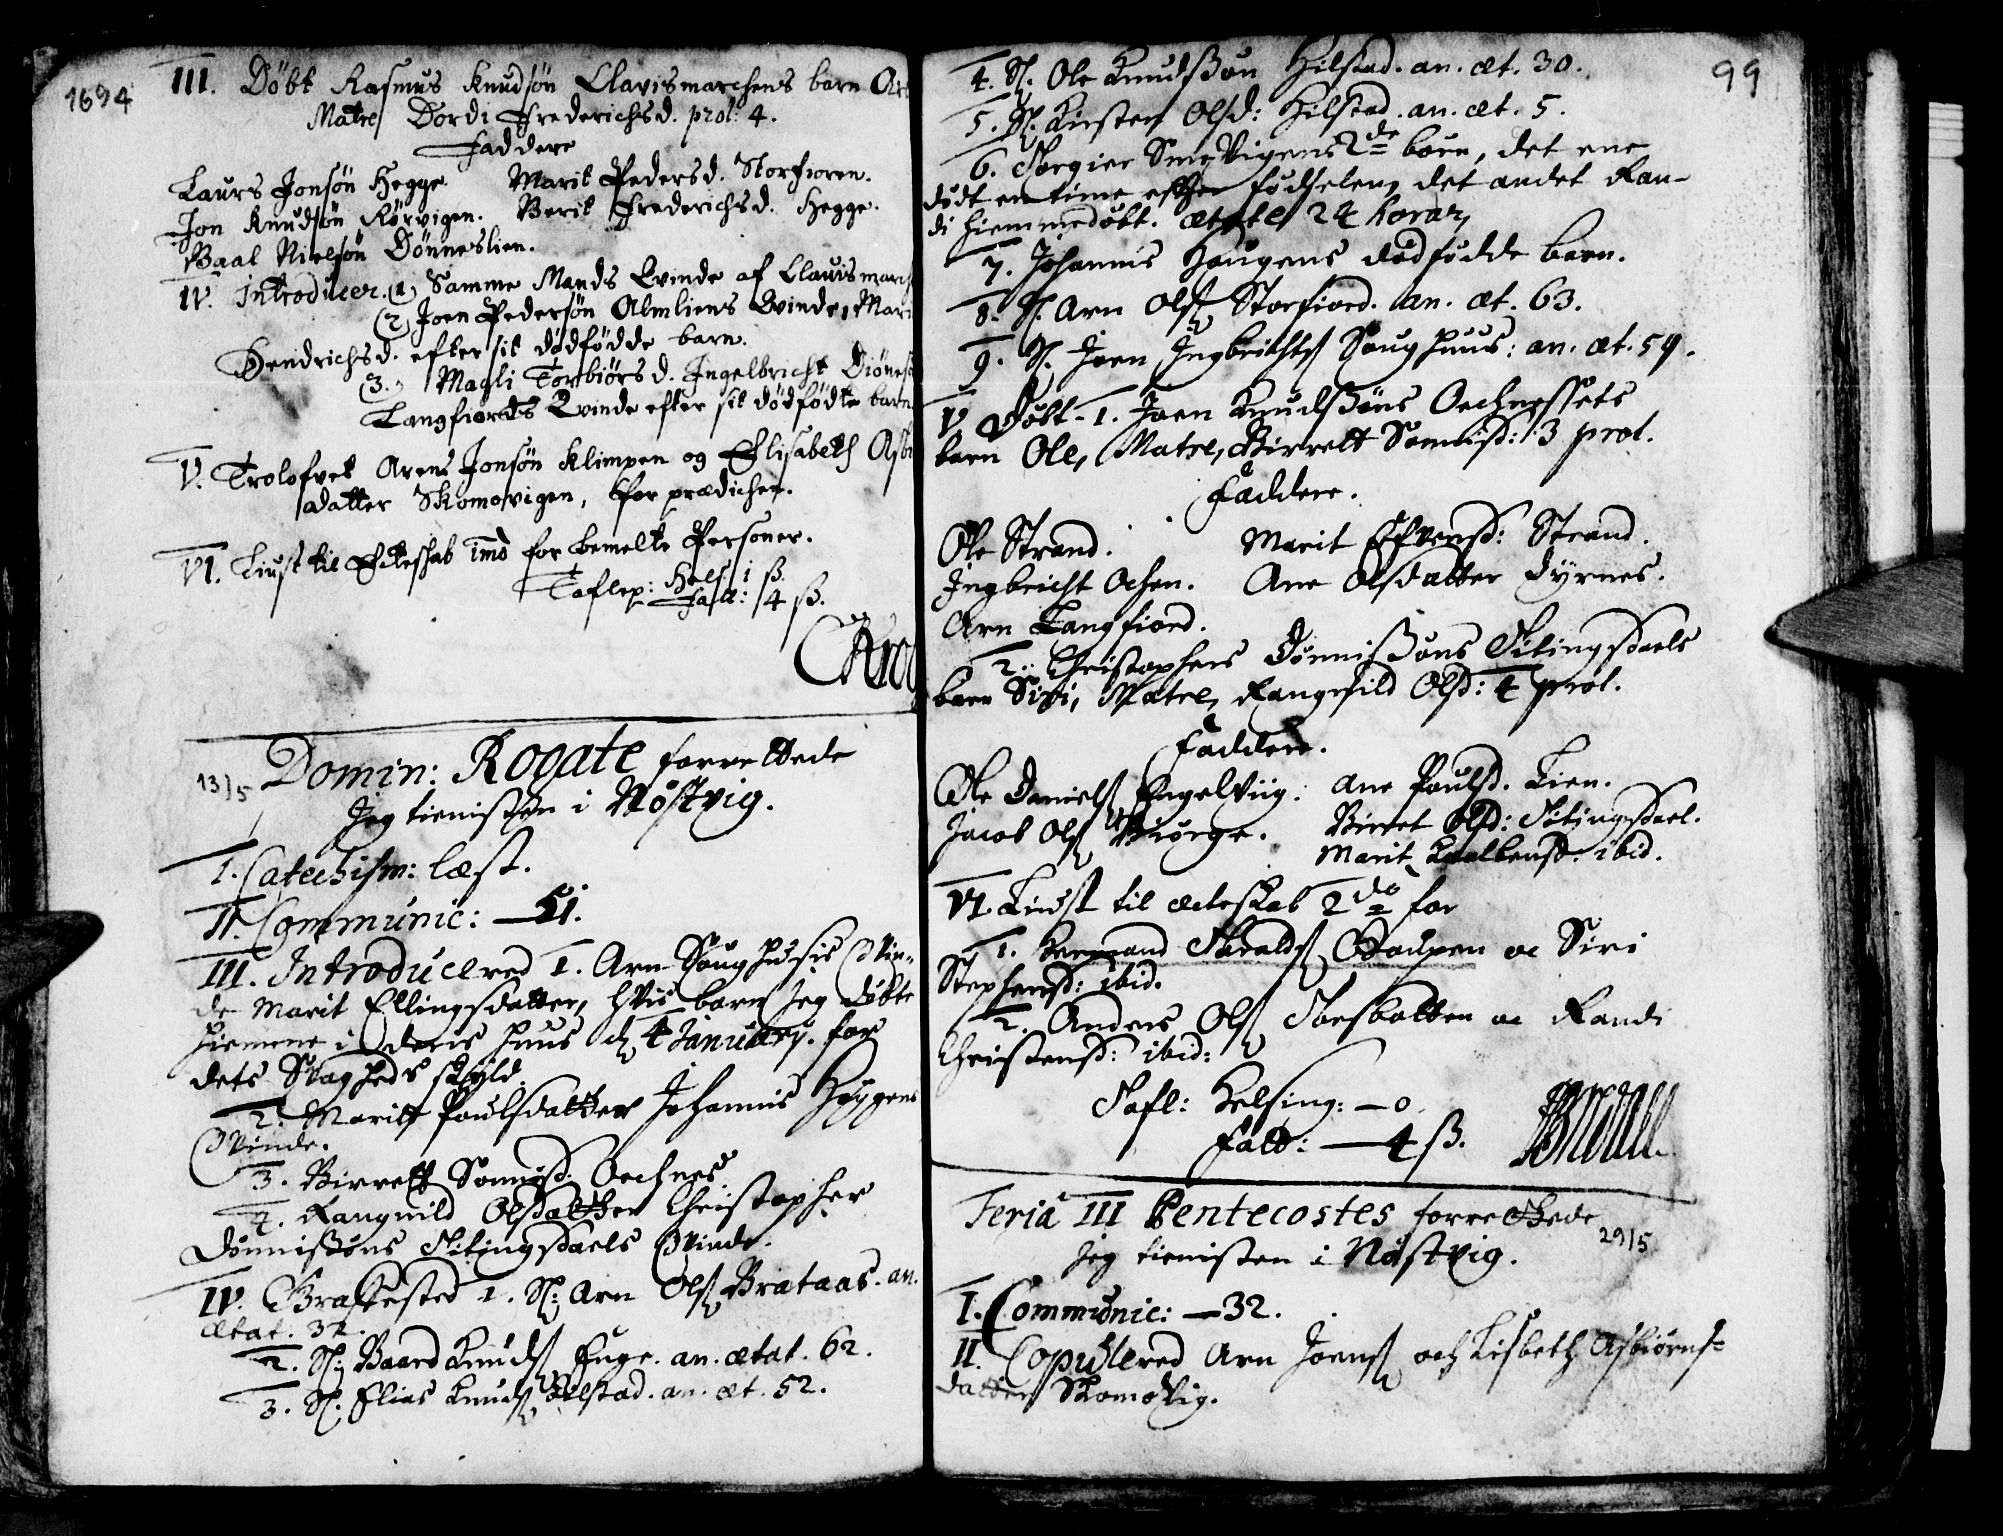 1694
III. Døbt Rasmus Knudsøn Clavismarchens barn
Matre Dordi Frederichsd. prol: 4.
Faddere
Laurs Jonsøn Hegge. Marit Pedersd. Storfioren.
Jon Knudsøn Rørvigen. Berit Frederichsd. Hegge.
Baal Nielsøn Dønneslien.
IV. Introducer. (1) Samme Mands Qvinde af Clavismarch
(2) Joen Pedersøn Almliens Qvinde, Mari
Hendrichsd. efter sit dødfødde barn.
(3.) Magli Torbiørsd. Ingelbricht
Langfiords Qvinde efter sit dødfødte barn
V. Trolofvet Arens Jonsøn Klimpen og Elisabeth Asbi
datter Skomovigen, for prædichen.
VI. Liust til Ecteskab imo for bemelte Personer.
Taflep: Hels: 1 ß.
Fatt: 4 ß.
13/5 Domin: Rogate forrettede
Jeg tienisten i Nøstvig.
I. Catechism: læst.
II. Communic: — 51.
III. Introducered 1. Arn Saughusis Qvin-
de Marit Ellingsdatter, hvis barn Jeg døbte
hiemme i deris huus d. 4 Januarij. for
dets Svagheds skyld.
2. Maritt Poulsdatter Johannis Høygens
Qvinde.
3. Birrett Sonnisd. Oechnes.
4. Rangnild Olsdatter Christopher
Dønnissøns Sitingsdaels Qvinde.
IV. Graffested 1. Sl: Arn Ols. Brataas. an.
ætat. 32.
2. Sl: Baard Knuds. Enge. an. ætat. 62.
3. Sl. Elias Knuds. Hilstad. an. æt. 52.
99
4. Sl: Ole Knudssøn Hilstad. an. æt. 30.
5. Sl. Kirsten Olsd: Hilstad. an. æt. 5.
6. Torgier Smevigens 2de børn, det ene
dødt en time efter fødselen, det andet Ran-
di hiemmedøbt. ætate 24 horar,
7. Johannis Haugens dødfødde barn.
8. Sl. Arn Ols. Storfiord. an. æt. 63.
9. Sl. Joen Ingbrichts. Saughuus: an. æt. 59.
V. Døbt 1. Joen Knudssøns Oechnessets
barn Ole, Matre, Birrett Sonnisd: 3 prol.
Faddere.
Ole Strand. Marit Efvensd: Strand.
Ingbricht Ochen. Ane Olsdatter Dyrnes.
Arn Langfiord.
2. Christophers Dønnissøns Sitingsdaels
barn Siri, Matre, Rangnild Olsd: 4 prol.
Faddere.
Ole Daniels. Engelviig. Ane Poulsd. Lien.
Jacob Ols. Biørge. Birret Olsd: Sitingsdael.
Marit ibid.
VI. Liust til ecteskab 2do for
1. Vermand Skralds. Gaupen oc Siri
Stephensd: ibid.
2. Anders Ols. Torsbatten oc Randi
Christensd: ibid:
Tafl: Helsing: — 0.
Fatt: — 4 ß.
Feria III Pentecostes forrettede
29/5
Jeg tienisten i Nøstvig.
I. Communic: — 32.
II. Copulered Arn Joens. och Lisbeth Asbiørns-
datter Skomovig.